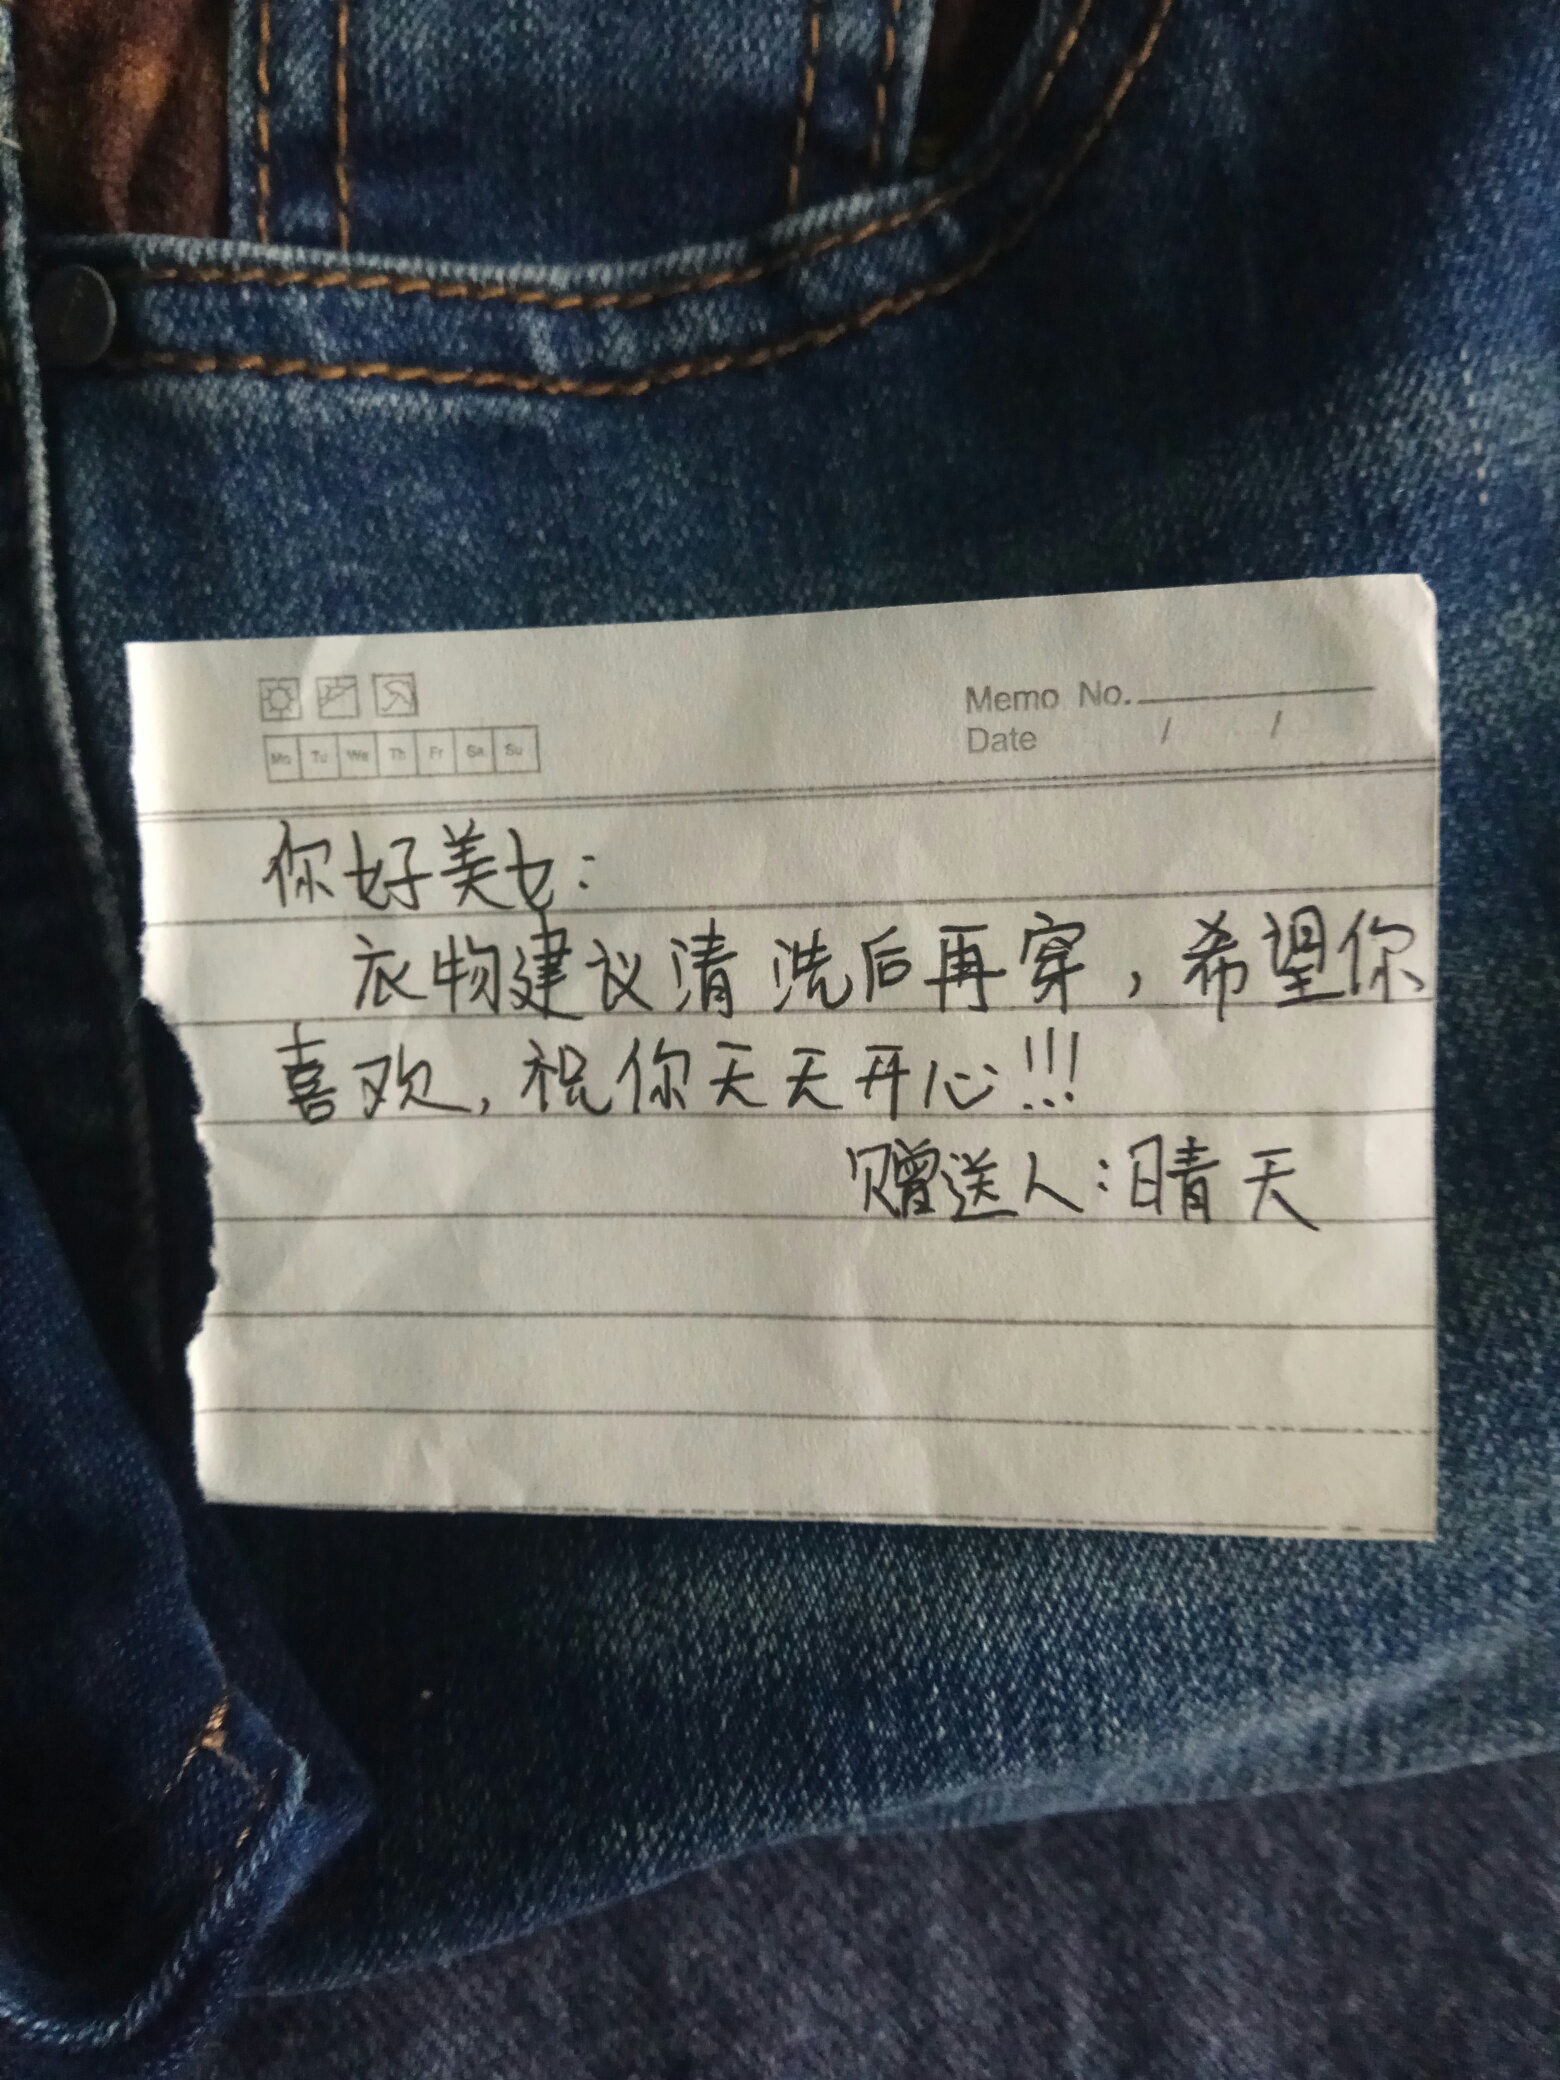 Memo No.
Date / /
Mo Tu We Th Fr Sa Su
你好美女：
衣物建议清洗后再穿，希望你
喜欢，祝你天天开心!!!
赠送人：晴天